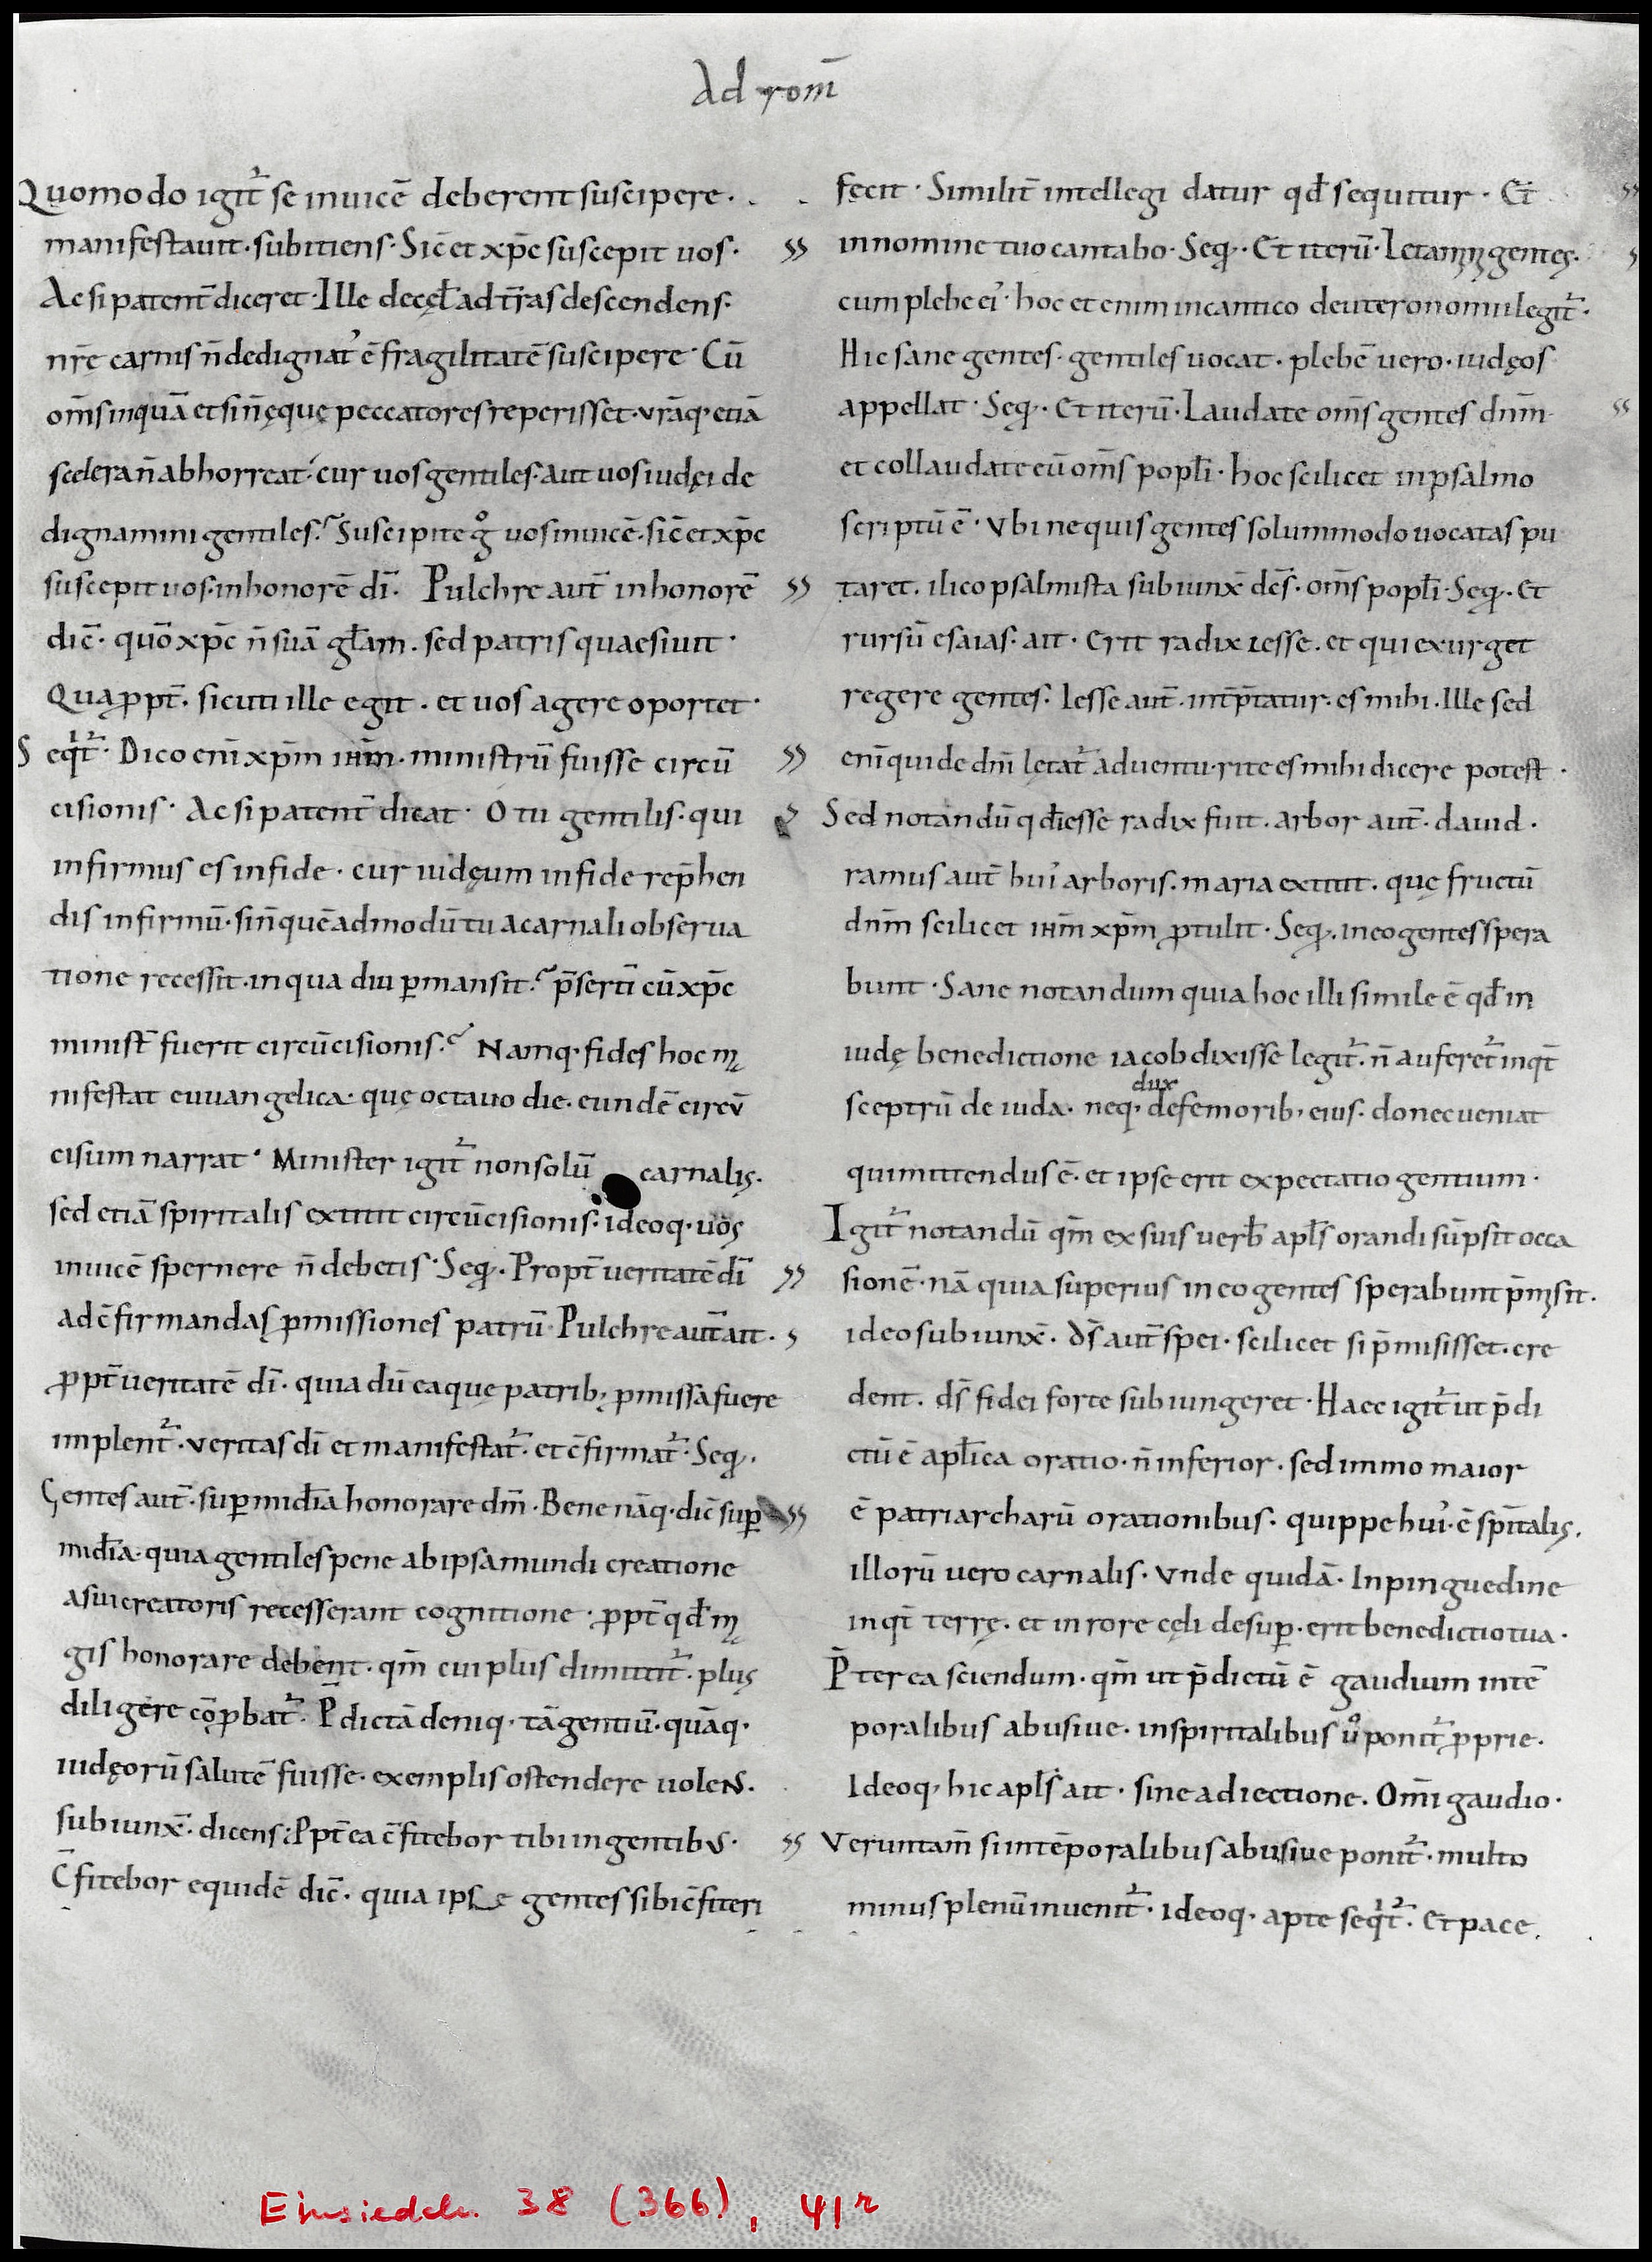 Ad rom̅
Quomodo igit̅ se inuice̅ deberent suscipere.
manifestauit. subitiens. Sic̅ et xp̅c suscepit uos.
Ac si patent̅ diceret. Ille de cęl̅ ad tr̅as descendens.
nr̅ę carnis n̅ dedignat' e̅ fragilitate̅ suscipere. Cu̅
om̅s inqua̅ et sin̅ ęque peccatores reperisset. vra̅q. etia̅
scelera n̅ abhorreat. cur uos gentiles. aut uos iudęi de
dignamini gentiles? Suscipite g̊ uos inuice̅. sic̅ et xp̅c
suscepit uos. in honore̅ di̅. Pulchre aut̅ in honore̅
dic̅. quo̅ xp̅c n̅ sua̅ gl̅am. sed patris quaesiuit.
Qua ꝓpt̅. sicuti ille egit. et uos agere oportet.
Seqt̅. Dico eni̅ xp̅m ihm̅. ministru̅ fuisse circu̅
cisionis. Ac si patent̅ dicat. O tu gentilis. qui
infirmus es in fide. cur iudęum in fide rep̅hen
dis infirmu̅. sin̅ que̅admodu̅ tu a carnali obserua
tione recessit. in qua diu ꝑmansit? p̅serti̅ cu̅ xp̅c
minist̅ fuerit circu̅cisionis? Namq. fides hoc ma
nifestat euuangelica. quę octauo die. eunde̅ circu̅
cisum narrat. Minister igit̅ non solu̅ carnalis.
sed etia̅ spiritalis extitit circu̅cisionis. ideoq. uos
inuice̅ spernere n̅ debetis. Seq. Propt̅ ueritate̅ di̅
ad c̅firmandas ꝓmissiones patru̅. Pulchre aut̅ ait.
ꝓpt̅ ueritate̅ di̅. quia du̅ ea quę patrib; ꝓmissa fuere
implent̅. veritas di̅ et manifestat̅. et c̅firmat̅. Seq.
Gentes aut̅. suꝑ mid̅ia honorare dm̅. Bene na̅q. dic̅ suꝑ
mid̅ia. quia gentiles pene ab ipsa mundi creatione
a sui creatoris recesserant cognitione. ꝓpt̅ qd̅ ma
gis honorare debent. qm̅ cui plus dimittit̅. plus
diligere co̅ꝓbat̅. P̅dicta̅ deniq. ta̅ gentiu̅. qua̅q.
iudęoru̅ salute̅ fuisse. exemplis ostendere uolens.
subiunx̅. dicens: Ppt̅ea c̅fitebor tibi in gentibus.
C̅fitebor equide̅ dic̅. quia ipse gentes sibi c̅fiteri
fecit. Similit̅ intellegi datur qd̅ sequitur. Et
in nomine tuo cantabo. Seq. Et iteru̅. Letamini gentes.
cum plebe ei'. hoc etenim in cantico deuteronomii legit̅.
Hic sane gentes. gentiles uocat. plebe̅ uero. iudęos
appellat. Seq. Et iteru̅. Laudate om̅s gentes dnm̅
et collaudate eu̅ om̅s popl̅i. hoc scilicet in psalmo
scriptu̅ e̅. Vbi ne quis gentes solummodo uocatas pu
taret. ilico psalmista subiunx̅ dc̅s. om̅s popl̅i. Seq. Et
rursu̅ esaias. ait. Erit radix iesse. et qui exurget
regere gentes. Iesse aut̅. int̅p̅tatur. es mihi. Ille sed
eni̅ qui de dni̅ letat̅ aduentu. rite es mihi dicere potest.
Sed notandu̅ qd̅ iesse radix fuit. arbor aut̅. dauid.
ramus aut̅ hui' arboris. maria extitit. quę fructu̅
dnm̅ scilicet ihm̅ xp̅m ꝓtulit. Seq. in eo gentes spera
bunt. Sane notandum quia hoc illi simile e̅ qd̅ in
iudę benedictione iacob dixisse legit̅. n̅ auferet̅ inqt̅
sceptru̅ de iuda. neq. dux de femorib; eius. donec ueniat
qui mittendus e̅. et ipse erit expectatio gentium.
Igit̅ notandu̅ qm̅ ex suis uerb̅ apl̅s orandi su̅psit occa
sione̅. na̅ quia superius in eo gentes sperabunt p̅misit.
ideo subiunx̅. ds̅ aut̅ spei. scilicet si p̅misisset. cre
dent. ds̅ fidei forte subiungeret. Haec igit̅ ut p̅di
ctu̅ e̅ apl̅ica oratio. n̅ inferior. sed immo maior
e̅ patriarcharu̅ orationibus. quippe hui'. e̅ spi̅talis.
illoru̅ uero carnalis. Vnde quida̅. In pinguedine
inqt̅ terrę. et in rore cęli desuꝑ. erit benedictio tua.
P̅terea sciendum. qm̅ ut p̅dictu̅ e̅ gaudium in te̅
poralibus abusiue. in spiritalibus ů ponit̅ ꝓprie.
Ideoq, hic apl̅s ait. sine adiectione. Om̅i gaudio.
Veruntam̅ si in te̅poralibus abusiue ponit̅. multo
minus plenu̅ inuenit̅. ideoq. apte seqt̅. Et pace.
Einsiedeln 38 (366), 41r